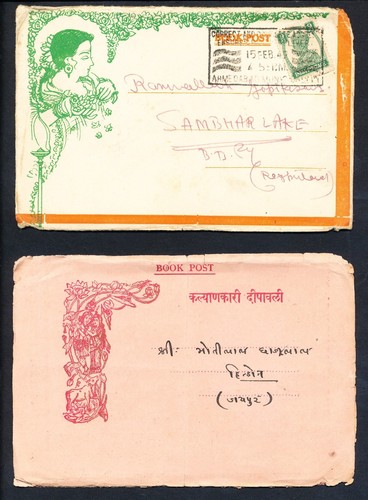 CORRECT AND
BOOK POST
15 FEB. 4
AHMEDABAD
Ramvallabh Gopikisan
SAMBHAR LAKE
B.B. Ry
BOOK POST
कल्याणकारी दीपावली
श्री: मोतीलाल
हिन्डोन
(जयपुर)